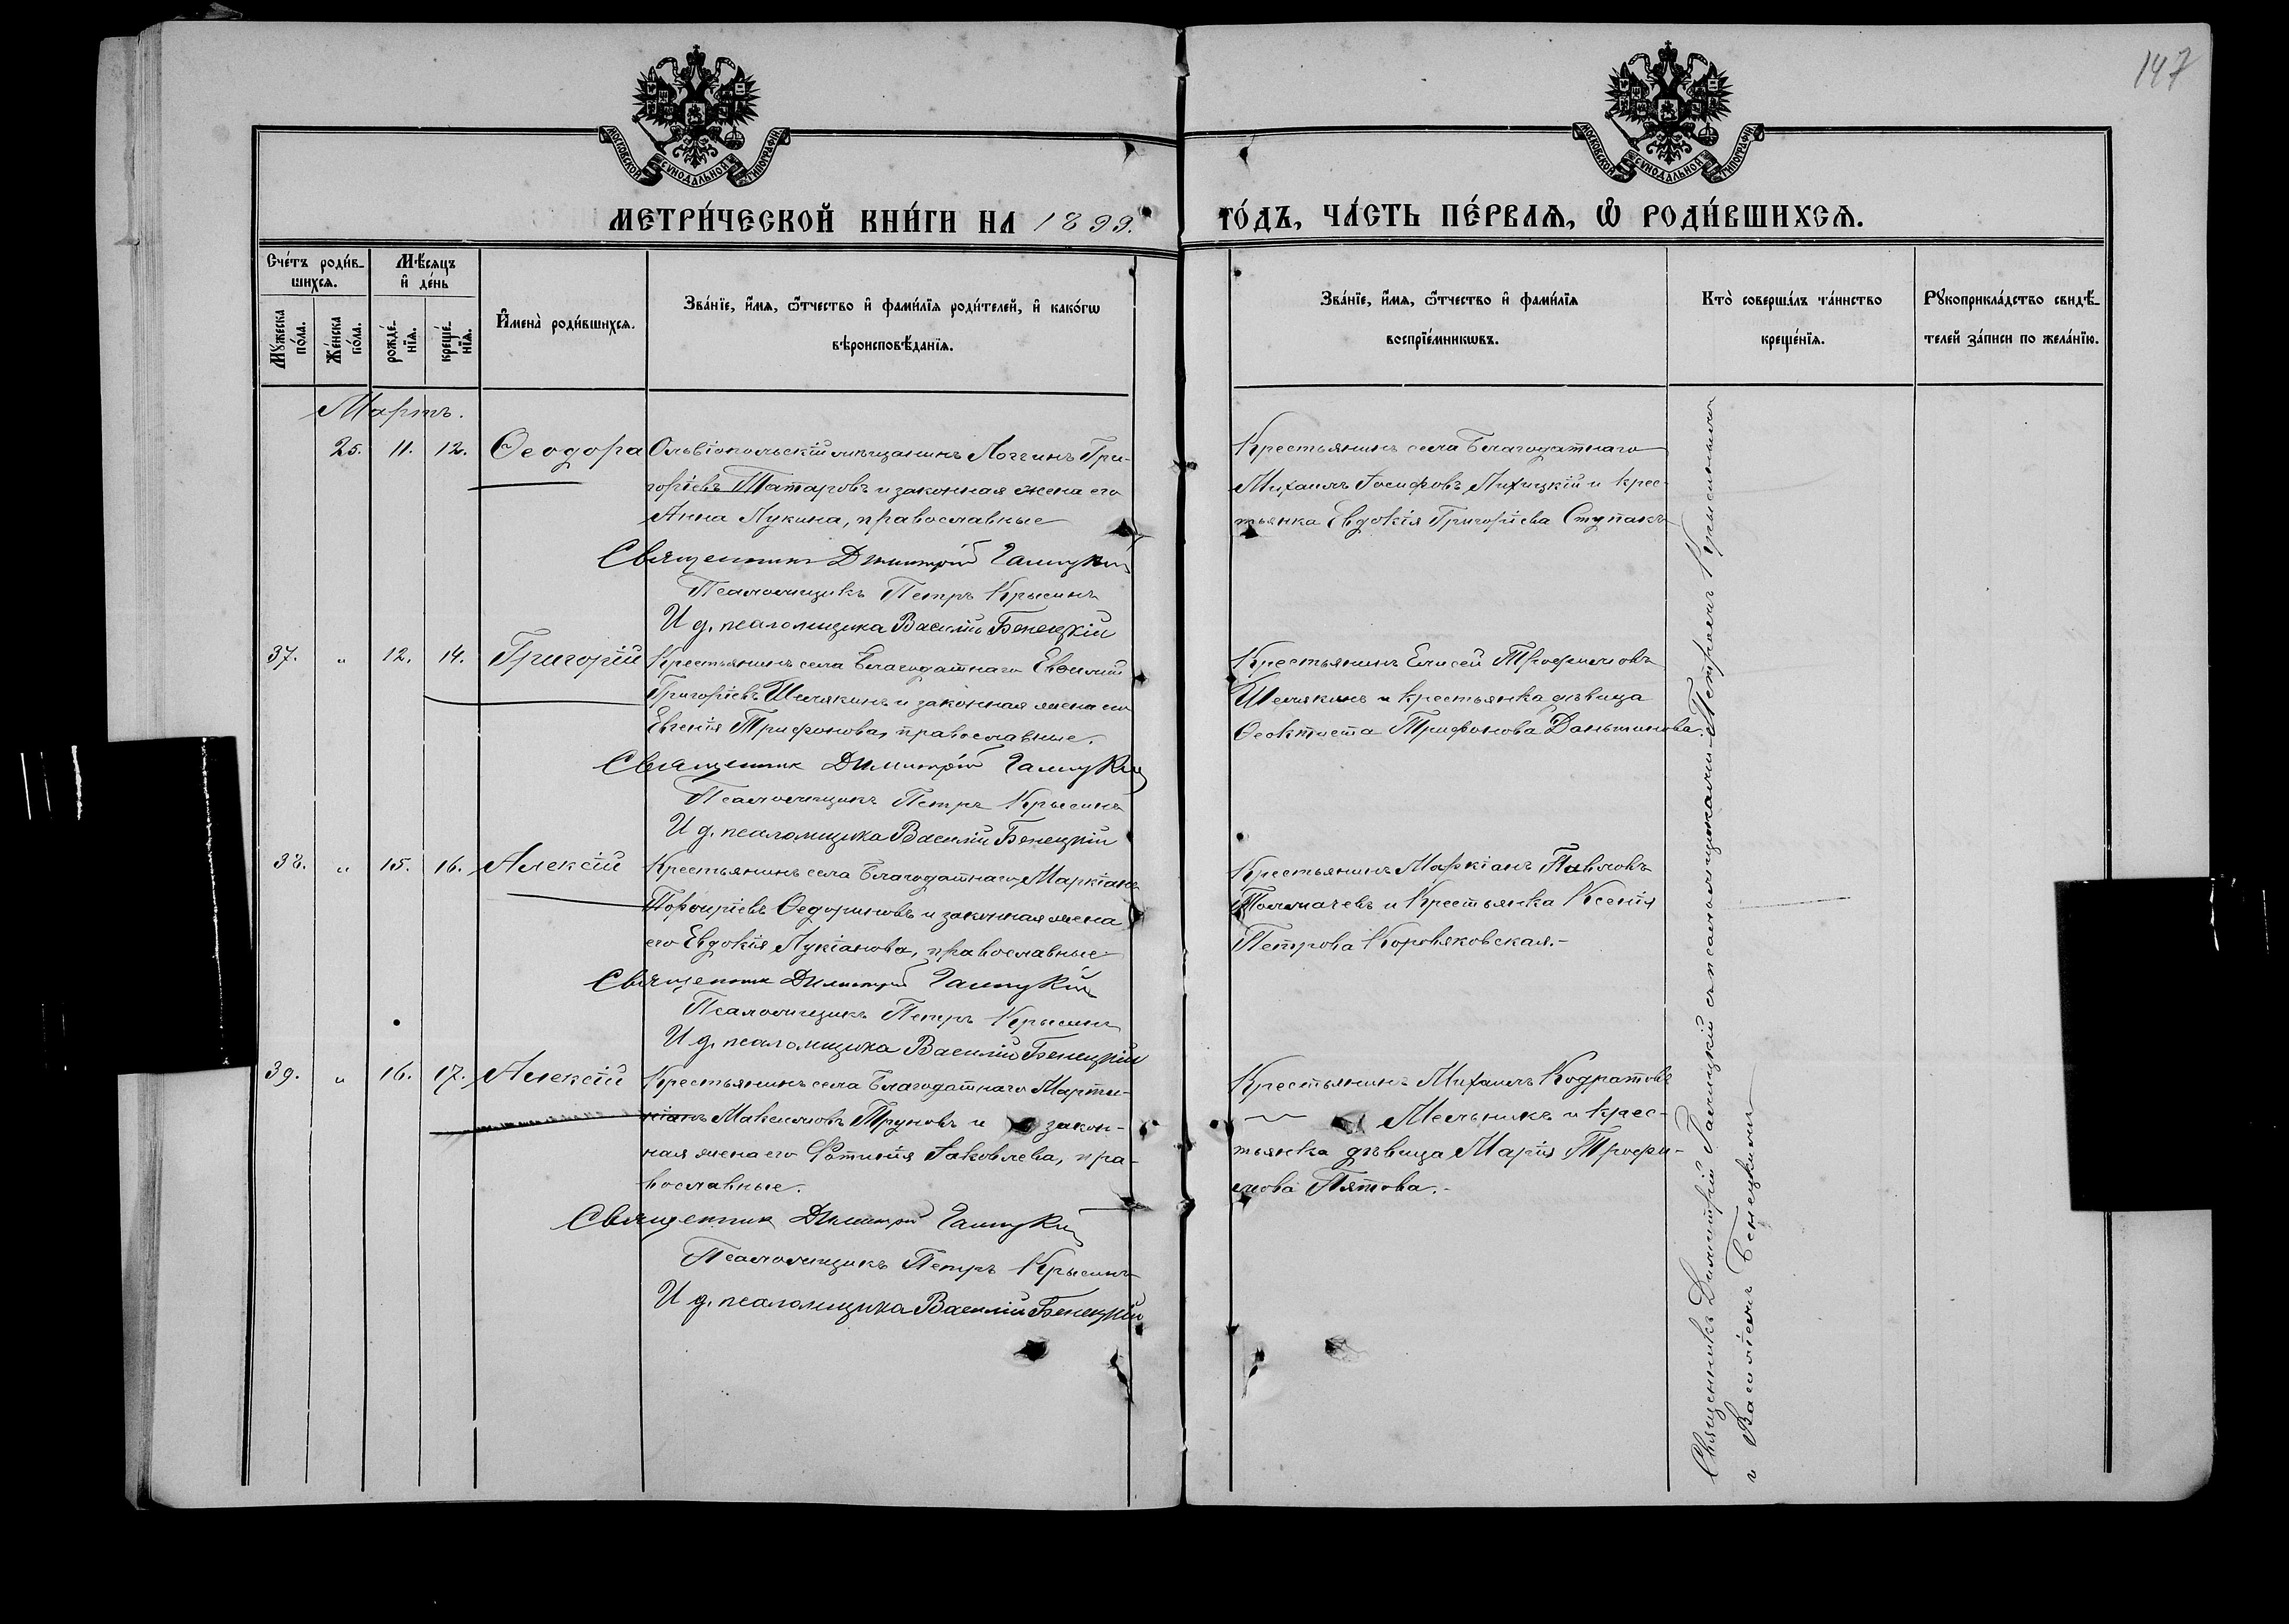 147
МОСКОВСКОЙ СѴНОДАЛЬНОЙ ТИПОГРАФІИ
МОСКОВСКОЙ СѴНОДАЛЬНОЙ ТИПОГРАФІИ
МЕТРИ́ЧЕСКОЙ КНИ́ГИ НА 1899. ГО́ДЪ, ЧА́СТЬ ПЕ́РВАѦ, Ѽ РОДИ́ВШИХСѦ.
Сче́тъ роди́в-
шихсѧ.
Му́жеска по́ла.
Же́нска по́ла.
Мѣ́сѧцъ
и҆ де́нь
рожде́-
нїѧ.
креще́-
нїѧ.
И҆мена̀ роди́вшихсѧ.
Зва́нїе, и҆́мѧ, ѻ҆́тчество и҆ фами́лїѧ роди́телей, и҆ како́гѡ
вѣроисповѣ́данїѧ.
Зва́нїе, и҆́мѧ, ѻ҆́тчество и҆ фами́лїѧ
воспрїе́мникѡвъ.
Кто̀ соверша́лъ та́инство
креще́нїѧ.
Рꙋкоприкла́дство свидѣ́-
телей за́писи по жела́нїю.
Мартъ.
25. 11. 12. Ѳеодора
Ольвіопольскій мѣщанинъ Логгинъ Гри-
горіевъ Татаровъ и законная жена его
Анна Лукина, православные
Священникъ Димитрій Галицкій
Псаломщикъ Петръ Крысинъ
И д. псаломщика Василій Бенецкій
Крестьянинъ села Благодатнаго
Михаилъ Іосифовъ Лихицкій и крес-
тьянка Евдокія Григоріева Ступакъ
37. " 12. 14. Григорій
Крестьянинъ села Благодатнаго Евѳимій
Григоріевъ Шелякинъ и законная жена его
Евгенія Трифонова, православные.
Священник Димитрій Галицкій
Псаломщикъ Петръ Крысинъ
И д. псаломщика Василій Бенецкій
Крестьянинъ Елисей Трофимовъ
Шелякинъ и крестьянка дѣвица
Ѳеоктиста Трифонова Даньшинова.
38. " 15. 16. Алексій
Крестьянинъ села Благодатнаго Маркіанъ
Порфиріевъ Ѳедориновъ и законная жена
его Евдокія Лукіанова, православные
Священник Димитрій Галицкій
Псаломщикъ Петръ Крысинъ
И д. псаломщика Василій Бенецкій
Крестьянинъ Маркіанъ Павловъ
Толмачевъ и Крестьянка Ксенія
Петрова Коровяковская.-
39. " 16. 17. Алексій
Крестьянинъ села Благодатнаго Марти-
кіанъ Максимовъ Труновъ и закон-
ная жена его Фотинія Іаковлева, пра-
вославные.
Священник Димитрій Галицкій
Псаломщикъ Петръ Крысинъ
И д. псаломщика Василій Бенецкій
Крестьянинъ Михаилъ Кодратовъ
Мельникъ и крес-
тьянка дѣвица Марія Трофи-
мова Пятова.-
Священникъ Димитрій Галицкій съ псаломщиками Петромъ Крысинымъ
и Василіемъ Бенецкимъ